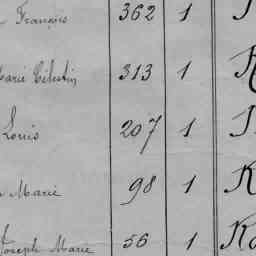 François 362 1
Marie Célestin 313 1
Louis 207 1
Marie 98 1 K
Joseph Marie 56 1